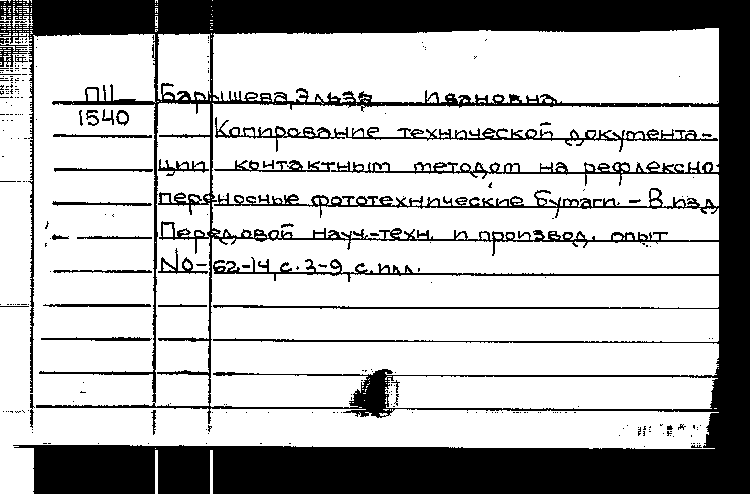 П11
1540
Барышева, Эльза Ивановна
Копирование технической документа-
ции контактным методом на рефлексно
переносные фототехнические бумаги. - В изд.
Передовой науч.-техн. и производ. опыт
No-62-14, с. 3-9, с илл.